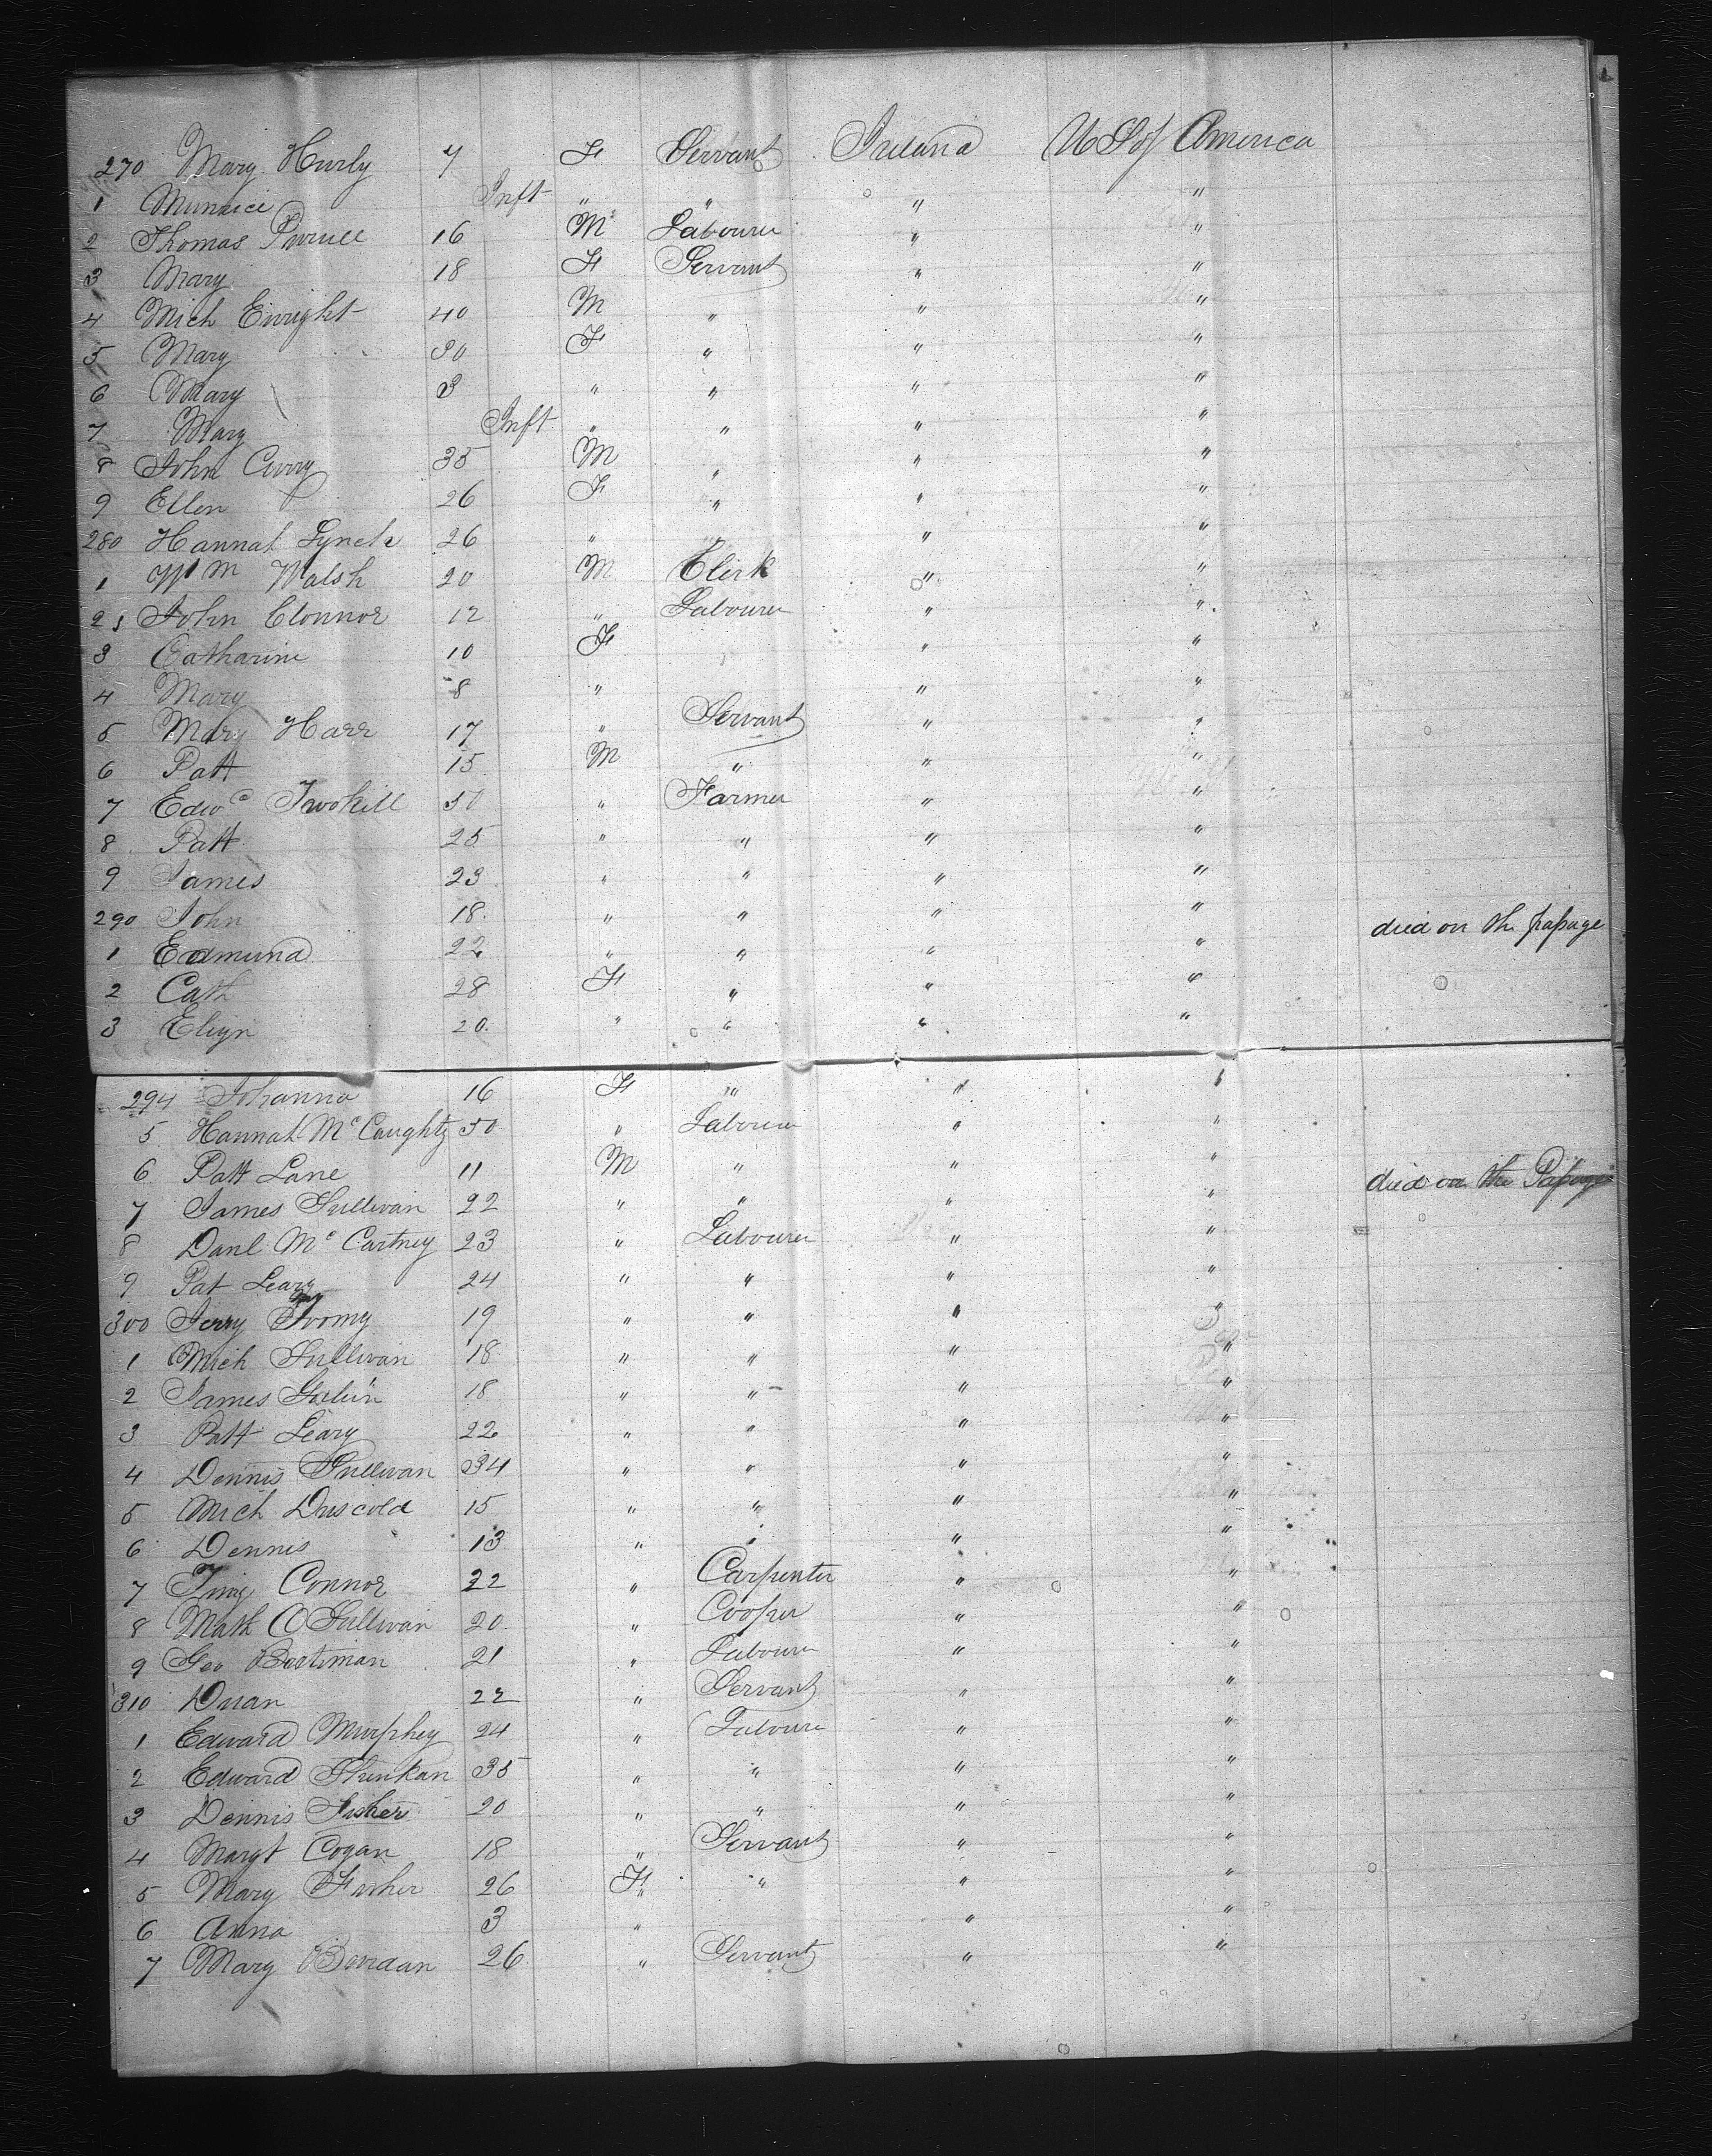 270 Mary Hurly 7 F Servant Ireland U S of America
1 Munnice Inft " " " "
2 Thomas Purcell 16 M Labourer " "
3 Mary 18 F Servant " "
4 Mich Enright 40 M " " "
5 Mary 30 F " " "
6 Mary 3 " " " "
7 Mary Inft " " " "
8 John Curry 35 M " " "
9 Ellen 26 F " " "
280 Hannah Lynch 26 " " "
1 Wm Walsh 20 M Clerk " "
2 John Connor 12 " Labourer " "
3 Catharine 10 F " "
4 Mary 8 " " "
5 Mary Harr 17 " Servant " "
6 Patt 15 M " " "
7 Edwd Twohill 50 " Farmer " "
8 Patt 25 " " " "
9 James 23 " " " "
290 John 18 " " " " died on the passage
1 Edmund 22 " " " "
2 Cath 28 F " " "
3 20 " " " "
294 Johanna 16 F " " "
5 Hannah McCaughty 50 " Labourer " "
6 Patt Lane 11 M " " " died on the Passage
7 James Sullivan 22 " " " "
8 Danl McCartney 23 " Labourer " "
9 Pat Leary 24 " " " "
300 Jerry Toomy 19 " " " "
1 Mich Sullivan 18 " " " "
2 James 18 " " " "
3 Patt Leary 22 " " " "
4 Dennis Sullivan 34 " " " "
5 Mich Driscold 15 " " " "
6 Dennis 13 " " " "
7 Connor 22 " Carpenter " "
8 Math O Sullivan 20 " Cooper " "
9 Geo Bastiman 21 " Labourer " "
310 22 " Servant " "
1 Edward Murphey 24 " Labourer " "
2 Edward 35 " " " "
3 Dennis Fisher 20 " " " "
4 Margt Cogan 18 " Servant " "
5 Mary Fisher 26 F " " "
6 Anna 3 " " "
7 Mary 26 " Servant " "